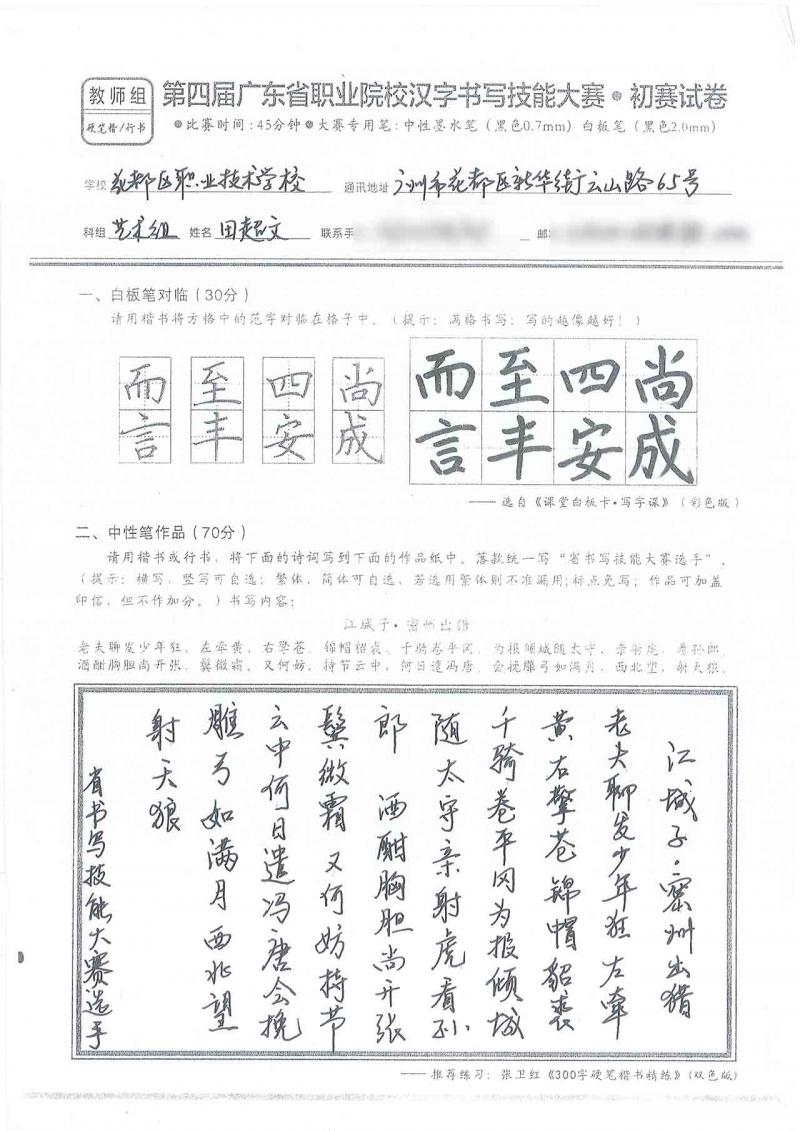 教师组
硬笔楷/行书
第四届广东省职业院校汉字书写技能大赛·初赛试卷
●比赛时间:45分钟●大赛专用笔:中性墨水笔(黑色0.7mm)白板笔(黑色2.0mm)
学校 花都区职业技术学校 通讯地址 广州市花都区新华街云山路65号
科组 艺术组 姓名 田超文 联系手 邮
一、白板笔对临(30分)
请用楷书将方格中的范字对临在格子中。(提示:满格书写;写的越像越好!)
而 至 四 尚
言 丰 安 成
而至四尚
言丰安成
——选自《课堂白板卡·写字课》(彩色版)
二、中性笔作品(70分)
请用楷书或行书,将下面的诗词写到下面的作品纸中。落款统一写“省书写技能大赛选手”。
(提示:横写、竖写可自选;繁体、简体可自选,若选用繁体则不准漏用;标点免写;作品可加盖
印信,但不作加分。)书写内容:
江城子·密州出猎
老夫聊发少年狂,左牵黄,右擎苍,锦帽貂裘,千骑卷平冈。为报倾城随太守,亲射虎,看孙郎。
酒酣胸胆尚开张,鬓微霜,又何妨。持节云中,何日遣冯唐。会挽雕弓如满月,西北望,射天狼。
江城子·密州出猎
老夫聊发少年狂左牵
黄右擎苍锦帽貂裘
千骑卷平冈为报倾城
随太守亲射虎看孙
郎 酒酣胸胆尚开张
鬓微霜又何妨持节
云中何日遣冯唐会挽
雕弓如满月西北望
射天狼
省书写技能大赛选手
——推荐练习:张卫红《300字硬笔楷书精练》(双色版)